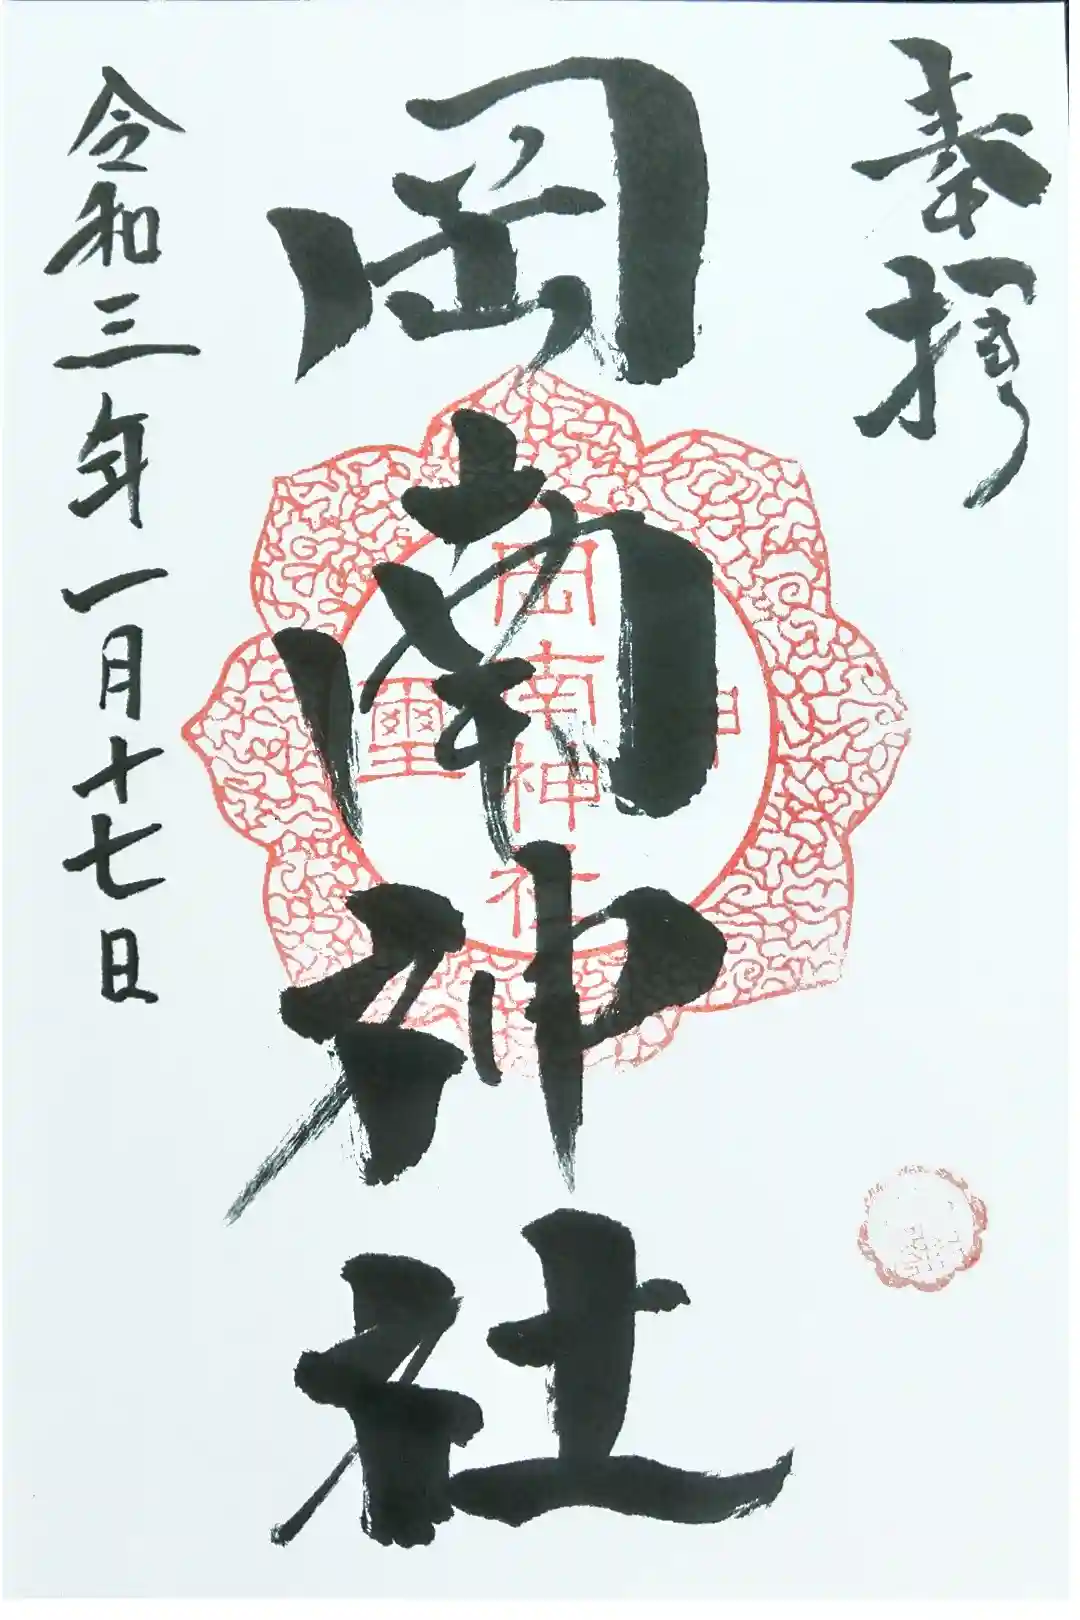 奉拝
岡南神社
岡南神社
神璽
令和三年一月十七日